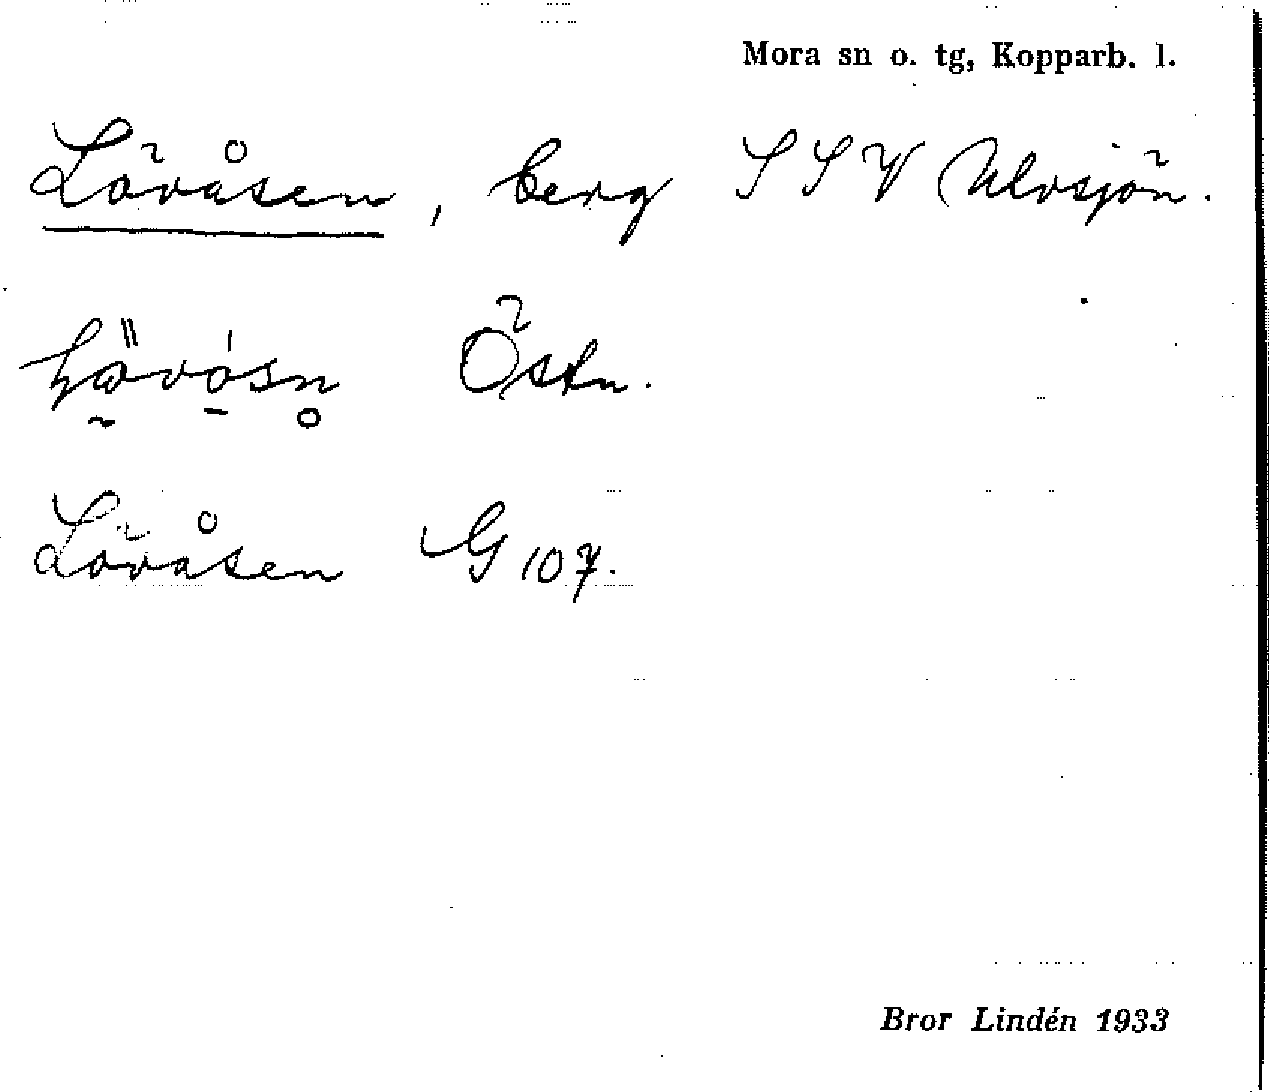 Mora sn o. tg, Kopparb. l.
Lövåsen, berg SSV Ulvsjön.
Östn.
Lövåsen G 107.
Bror Lindén 1933